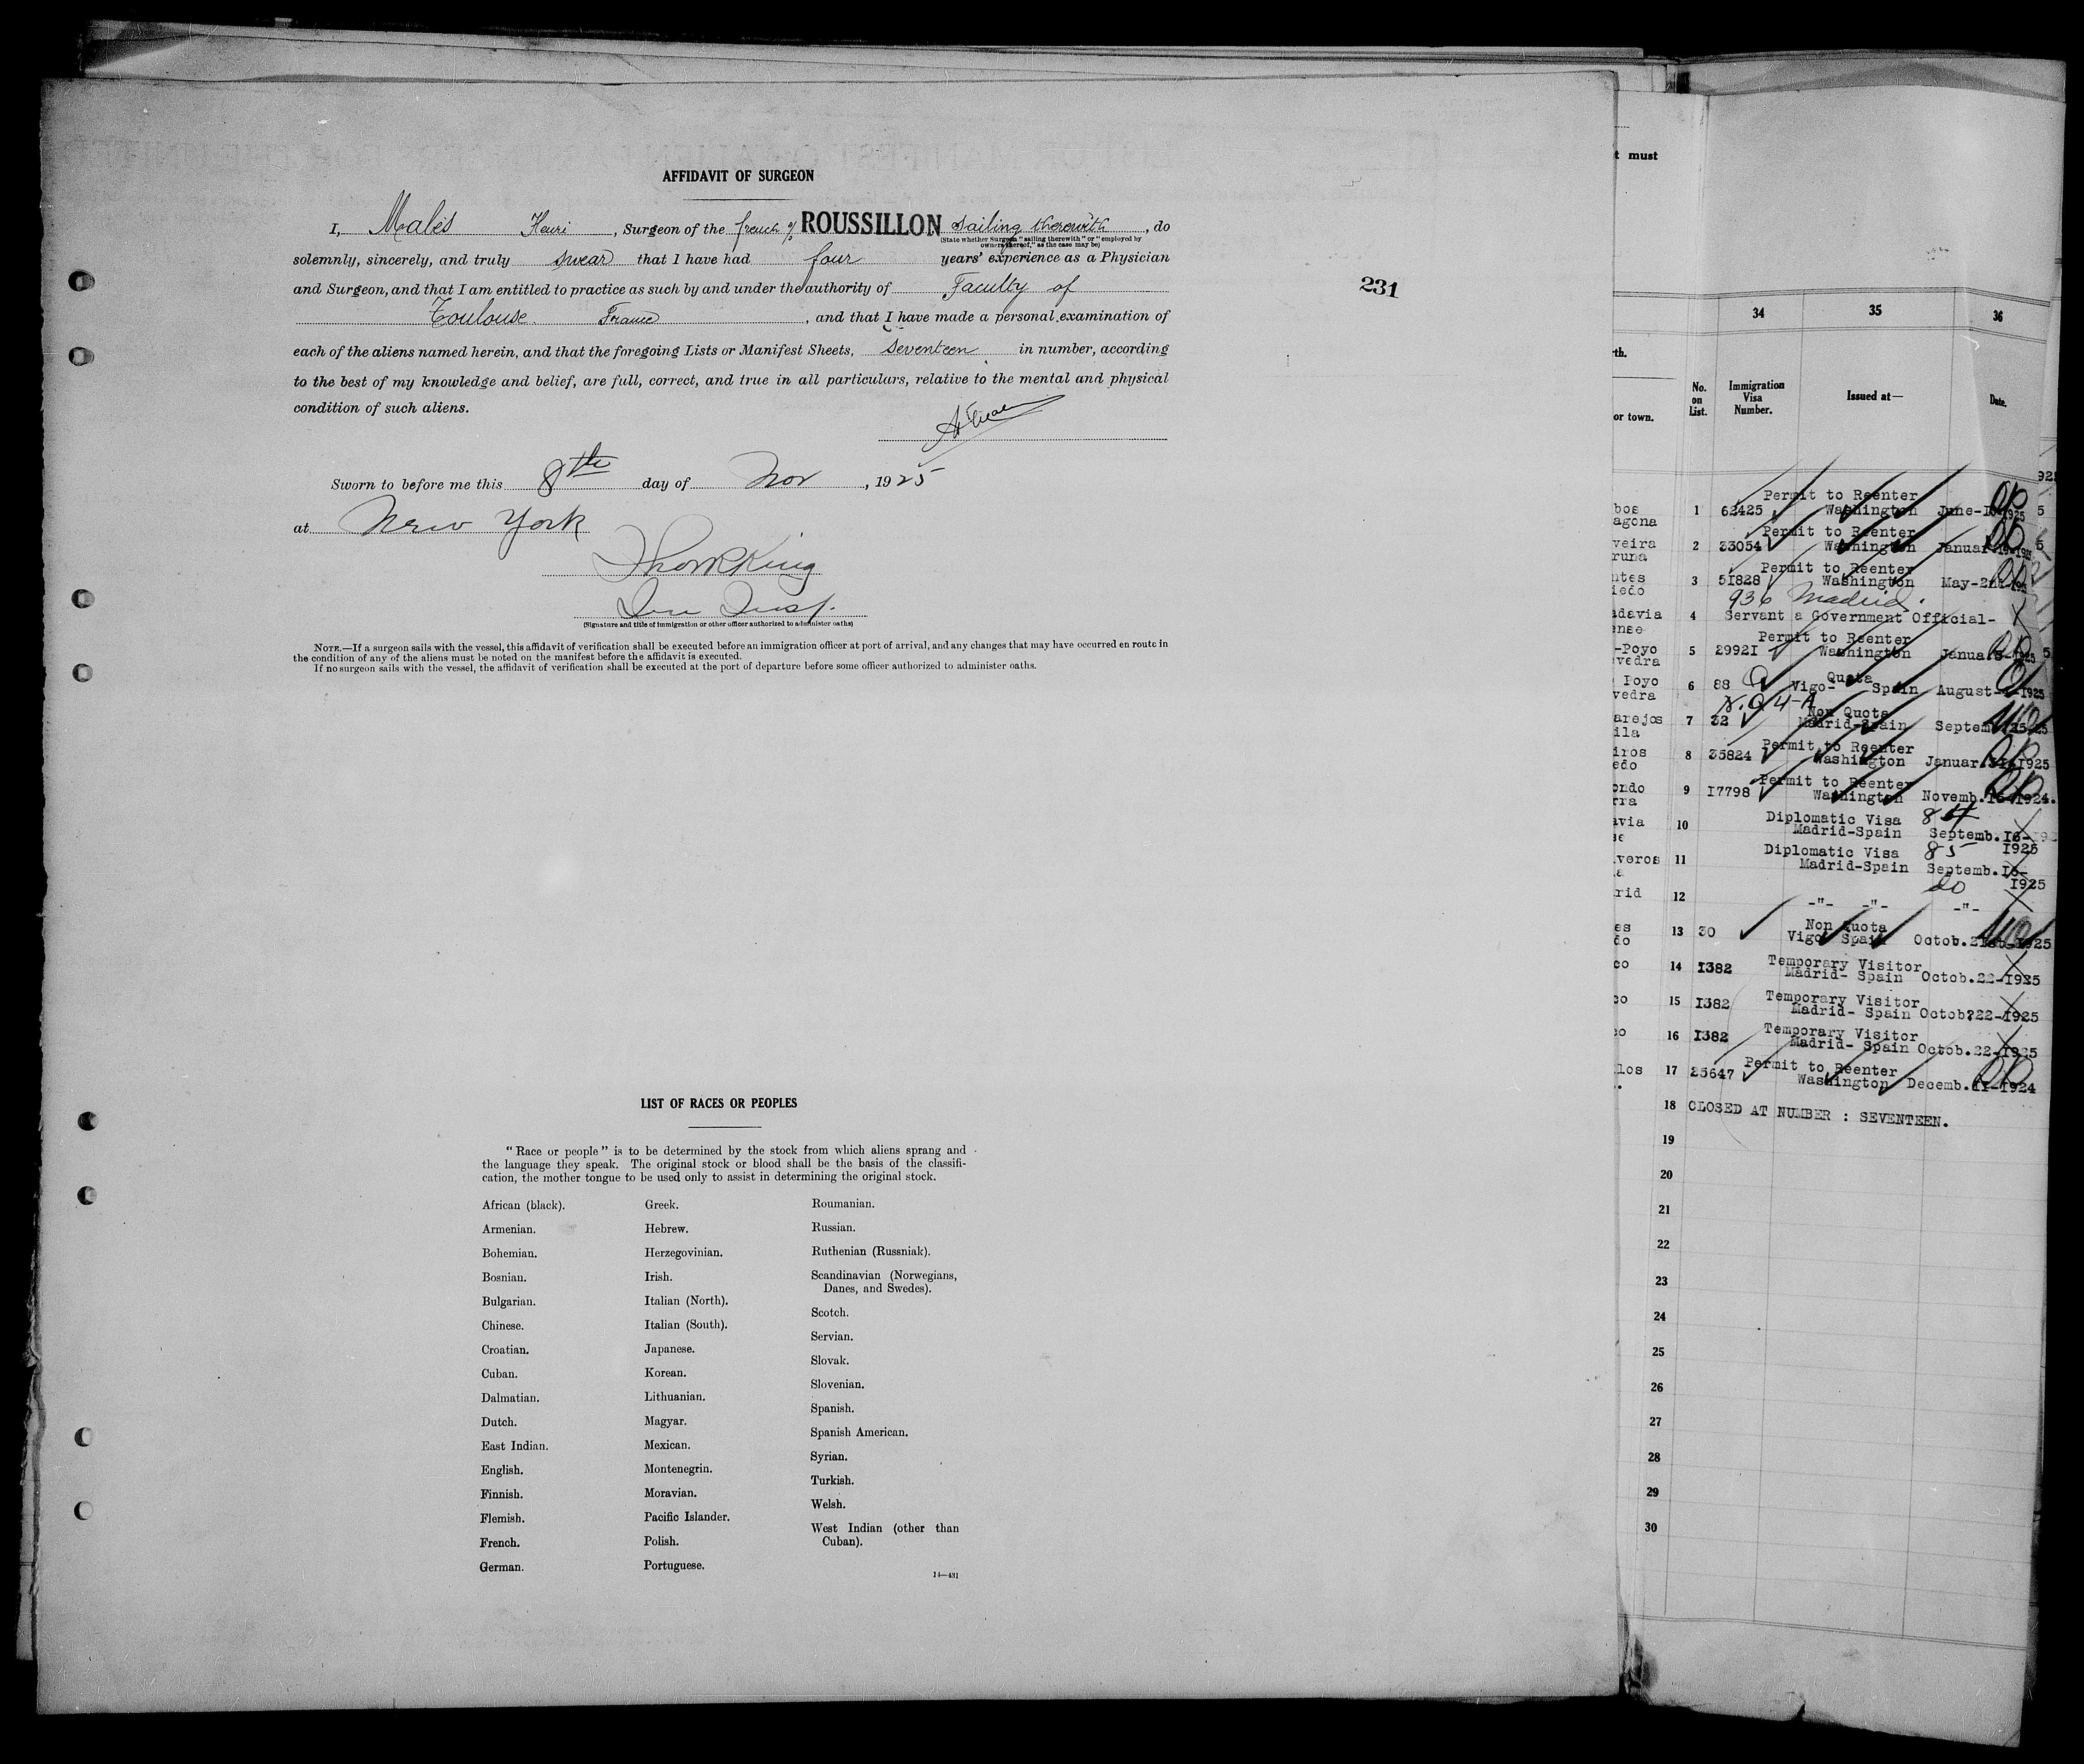 AFFIDAVIT OF SURGEON
I, Malès Henri, Surgeon of the french ROUSSILLON sailing therewith, do
(State whether Surgeon "sailing therewith" or "employed by
owners thereof," as the case may be)
solemnly, sincerely, and truly swear that I have had four years' experience as a Physician
and Surgeon, and that I am entitled to practice as such by and under the authority of Faculty of
Toulouse France, and that I have made a personal examination of
each of the aliens named herein, and that the foregoing Lists or Manifest Sheets, seventeen in number, according
to the best of my knowledge and belief, are full, correct, and true in all particulars, relative to the mental and physical
condition of such aliens.
Sworn to before me this 8th day of Nov, 1925
at New York
(Signature and title of immigration or other officer authorized to administer oaths)
NOTE.—If a surgeon sails with the vessel, this affidavit of verification shall be executed before an immigration officer at port of arrival, and any changes that may have occurred en route in
the condition of any of the aliens must be noted on the manifest before the affidavit is executed.
If no surgeon sails with the vessel, the affidavit of verification shall be executed at the port of departure before some officer authorized to administer oaths.
231
LIST OF RACES OR PEOPLES
"Race or people" is to be determined by the stock from which aliens sprang and
the language they speak. The original stock or blood shall be the basis of the classifi-
cation, the mother tongue to be used only to assist in determining the original stock.
African (black).
Armenian.
Bohemian.
Bosnian.
Bulgarian.
Chinese.
Croatian.
Cuban.
Dalmatian.
Dutch.
East Indian.
English.
Finnish.
Flemish.
French.
German.
Greek.
Hebrew.
Herzegovinian.
Irish.
Italian (North).
Italian (South).
Japanese.
Korean.
Lithuanian.
Magyar.
Mexican.
Montenegrin.
Moravian.
Pacific Islander.
Polish.
Portuguese.
Roumanian.
Russian.
Ruthenian (Russniak).
Scandinavian (Norwegians,
Danes, and Swedes).
Scotch.
Servian.
Slovak.
Slovenian.
Spanish.
Spanish American.
Syrian.
Turkish.
Welsh.
West Indian (other than
Cuban).
14—431
must
34 35 36
No. on List. Immigration Visa Number. Issued at— Date.
or town.
Permit to Reenter
1 62425 Washington June-
Permit to Reenter
2 33054 Washington Januar.
Permit to Reenter
3 51828 Washington May-2nd
936 Madrid.
4 Servant a Government Official-
Permit to Reenter
5 29921 Washington Janua.
Quota
6 88 Vigo- Spain August- 1925
N.Q 4-A
Non Quota
7 32 Madrid-Spain Septem.
Permit to Reenter
8 35824 Washington Januar. 1925
Permit to Reenter
9 17798 Washington Novemb. 1924.
Diplomatic Visa 84
10 Madrid-Spain Septemb.16-
1925
Diplomatic Visa 85
11 Madrid-Spain Septemb.16-
1925
do
12 -"- -"- -"-
Non Quota
13 30 Vigo Spain Octob.21st-1925
Temporary Visitor
14 1382 Madrid- Spain Octob.22-1925
Temporary Visitor
15 1382 Madrid- Spain Octob?22-1925
Temporary Visitor
16 1382 Madrid- Spain Octob.22-1925
Permit to Reenter
17 25647 Washington Decemb.11-1924
18 CLOSED AT NUMBER : SEVENTEEN.
19
20
21
22
23
24
25
26
27
28
29
30